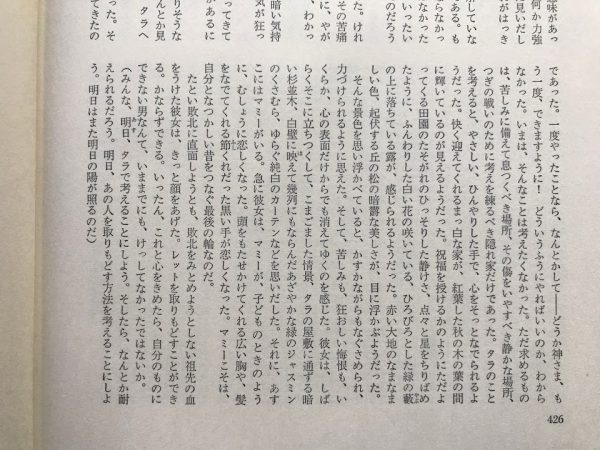 味があっ
何か力強
見いだし
はっき
していな
ある。も
らなかっ
なかった
いったい
のだろう
た。けれ
その苦痛
に、やが
、わかっ
暗い気持
気が狂っ
ってきて
があるに
りそうな
んとか見
、タラへ
った。そ
てきたの
であった。一度やったことなら、なんとかして――どうか神さま、も
う一度、できますように！　どういうふうにやればいいのか、わから
なかった。いまは、そんなことは考えたくなかった。ただ求めるもの
は、苦しみに備えて息つくべき場所、その傷をいやすべき静かな場所、
つぎの戦いのために考えを練るべき隠れ家だけであった。タラのこと
を考えると、やさしい、ひんやりした手で、心をそっとなでられるよ
うだった。快く迎えてくれるまっ白な家が、紅葉した秋の木の葉の間
に輝いているのが見えるようだった。祝福を授けるかのようにただよ
ってくる田園のたそがれのひっそりした静けさ、点々と星をちりばめ
たように、ふんわりした白い花の咲いている、ひろびろとした緑の藪
の上に落ちている露が、感じられるようだった。赤い大地のなまなま
しい色、起伏する丘の松の暗鬱な美しさが、目に浮かぶようだった。
そんな景色を思い浮かべていると、かすかながらもなぐさめられ、
力づけられるように思えた。そして、苦しみも、狂おしい悔恨も、い
くらか、心の表面だけからでも消えてゆくのを感じた。彼女は、しば
らくそこに立ちつくして、こまごました情景、タラの屋敷に通ずる暗
い杉並木、白壁に映えて幾列にもならんだあざやかな緑のジャスミン
のくさむら、ゆらぐ純白のカーテンなどを思いだした。それに、あす
こにはマミーがいる。急に彼女は、マミーが、子どものときのよう
に、むしょうに恋しくなった。頭をもたせかけてくれる広い胸や、髪
をなでてくれる節くれだった黒い手が恋しくなった。マミーこそは、
自分となつかしい昔をつなぐ最後の輪なのだ。
たとい敗北に直面しようとも、敗北をみとめようとしない祖先の血
をうけた彼女は、きっと顔をあげた。レットを取りもどすことができ
る。かならずできる。いったん、これと心をきめたら、自分のものに
できない男なんて、いままでにも、けっしてなかったではないか。
（みんな、明日、タラで考えることにしよう。そしたら、なんとか耐
えられるだろう。明日、あの人を取りもどす方法を考えることにしよ
う。明日はまた明日の陽が照るのだ）
426